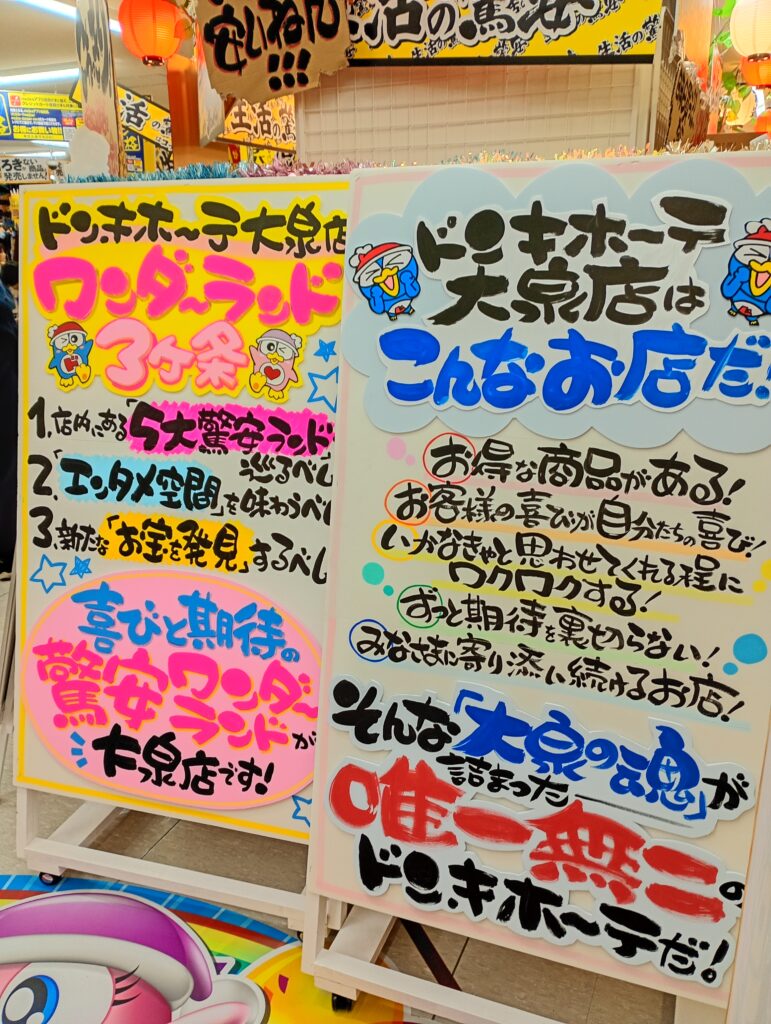 安いねん
!!!
生活の驚安
生活の驚安
ドン.キホーテ大泉店
ワンダーランド
3ヶ条
1.店内にある「5大驚安ランド
巡るべし
2.「エンタメ空間」を味わうべし
3.新たな「お宝を発見」するべし
喜びと期待の
驚安ワンダーランドが
大泉店です!
ドン.キホーテ
大泉店は
こんなお店だ!
お得な商品がある!
お客様の喜びが自分たちの喜び!
いかなきゃと思わせてくれる程に
ワクワクする!
ずっと期待を裏切らない!
みなさまに寄り添い続けるお店!
そんな「大泉の魂」が
詰まった
唯一無二の
ドン.キホーテだ!